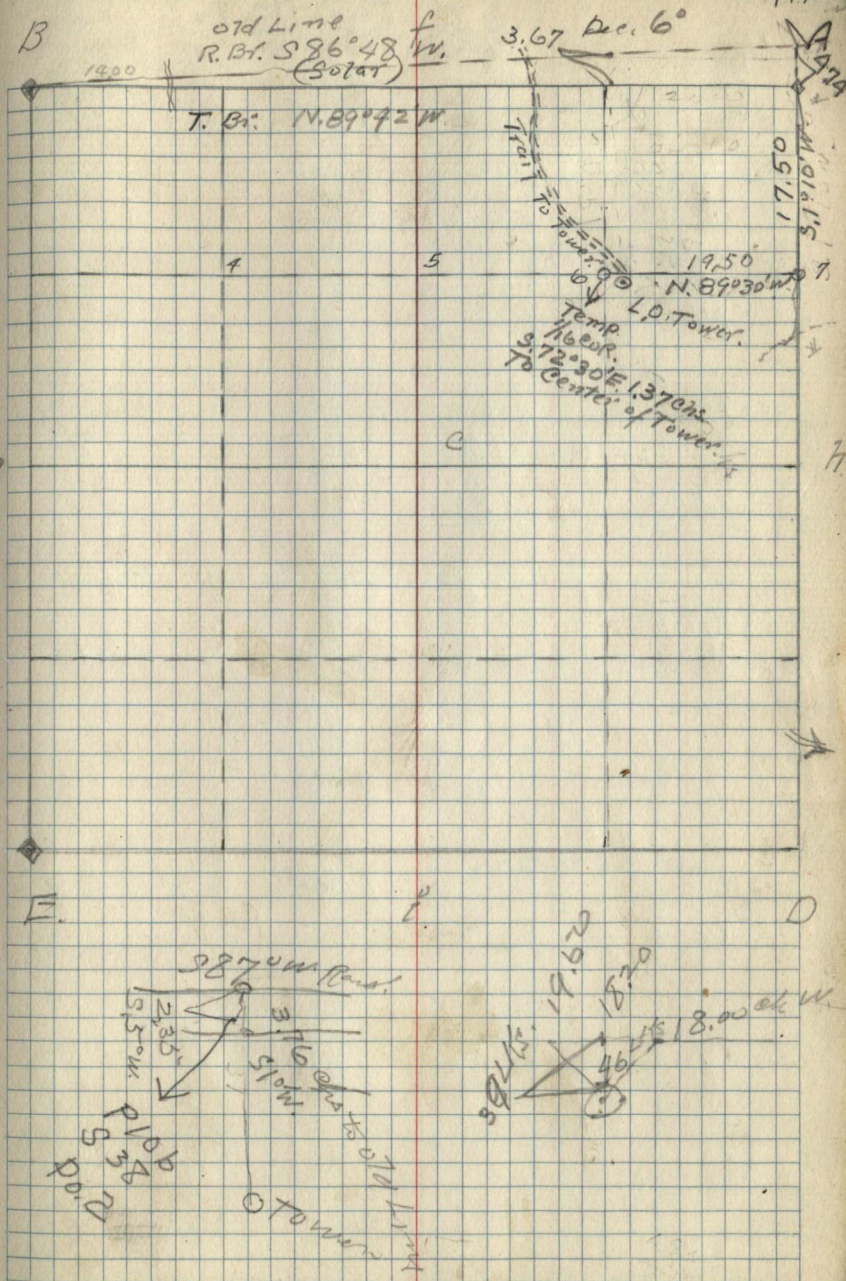 B
Old Line
f
R. Br. S 86° 48' W.
(Solar)
3.67
Dec. 6°
A
474
1400
T. Br. N. 89° 42' W
Trail
To Tower.
17.50
S. 1° 10' W.
4
5
6
19,50
N. 89° 30' W.
7
L.O. Tower.
Temp.
1/16 COR.
S. 72° 30' E. 1.37 chs
To Center of Tower.
C
h
E.
i
D
S 87° W. Rand.
2,35
S, 5° W.
3.76 chs to old Line
S 1° W.
Tower
19.62
18.20
18.00 ch W.
46